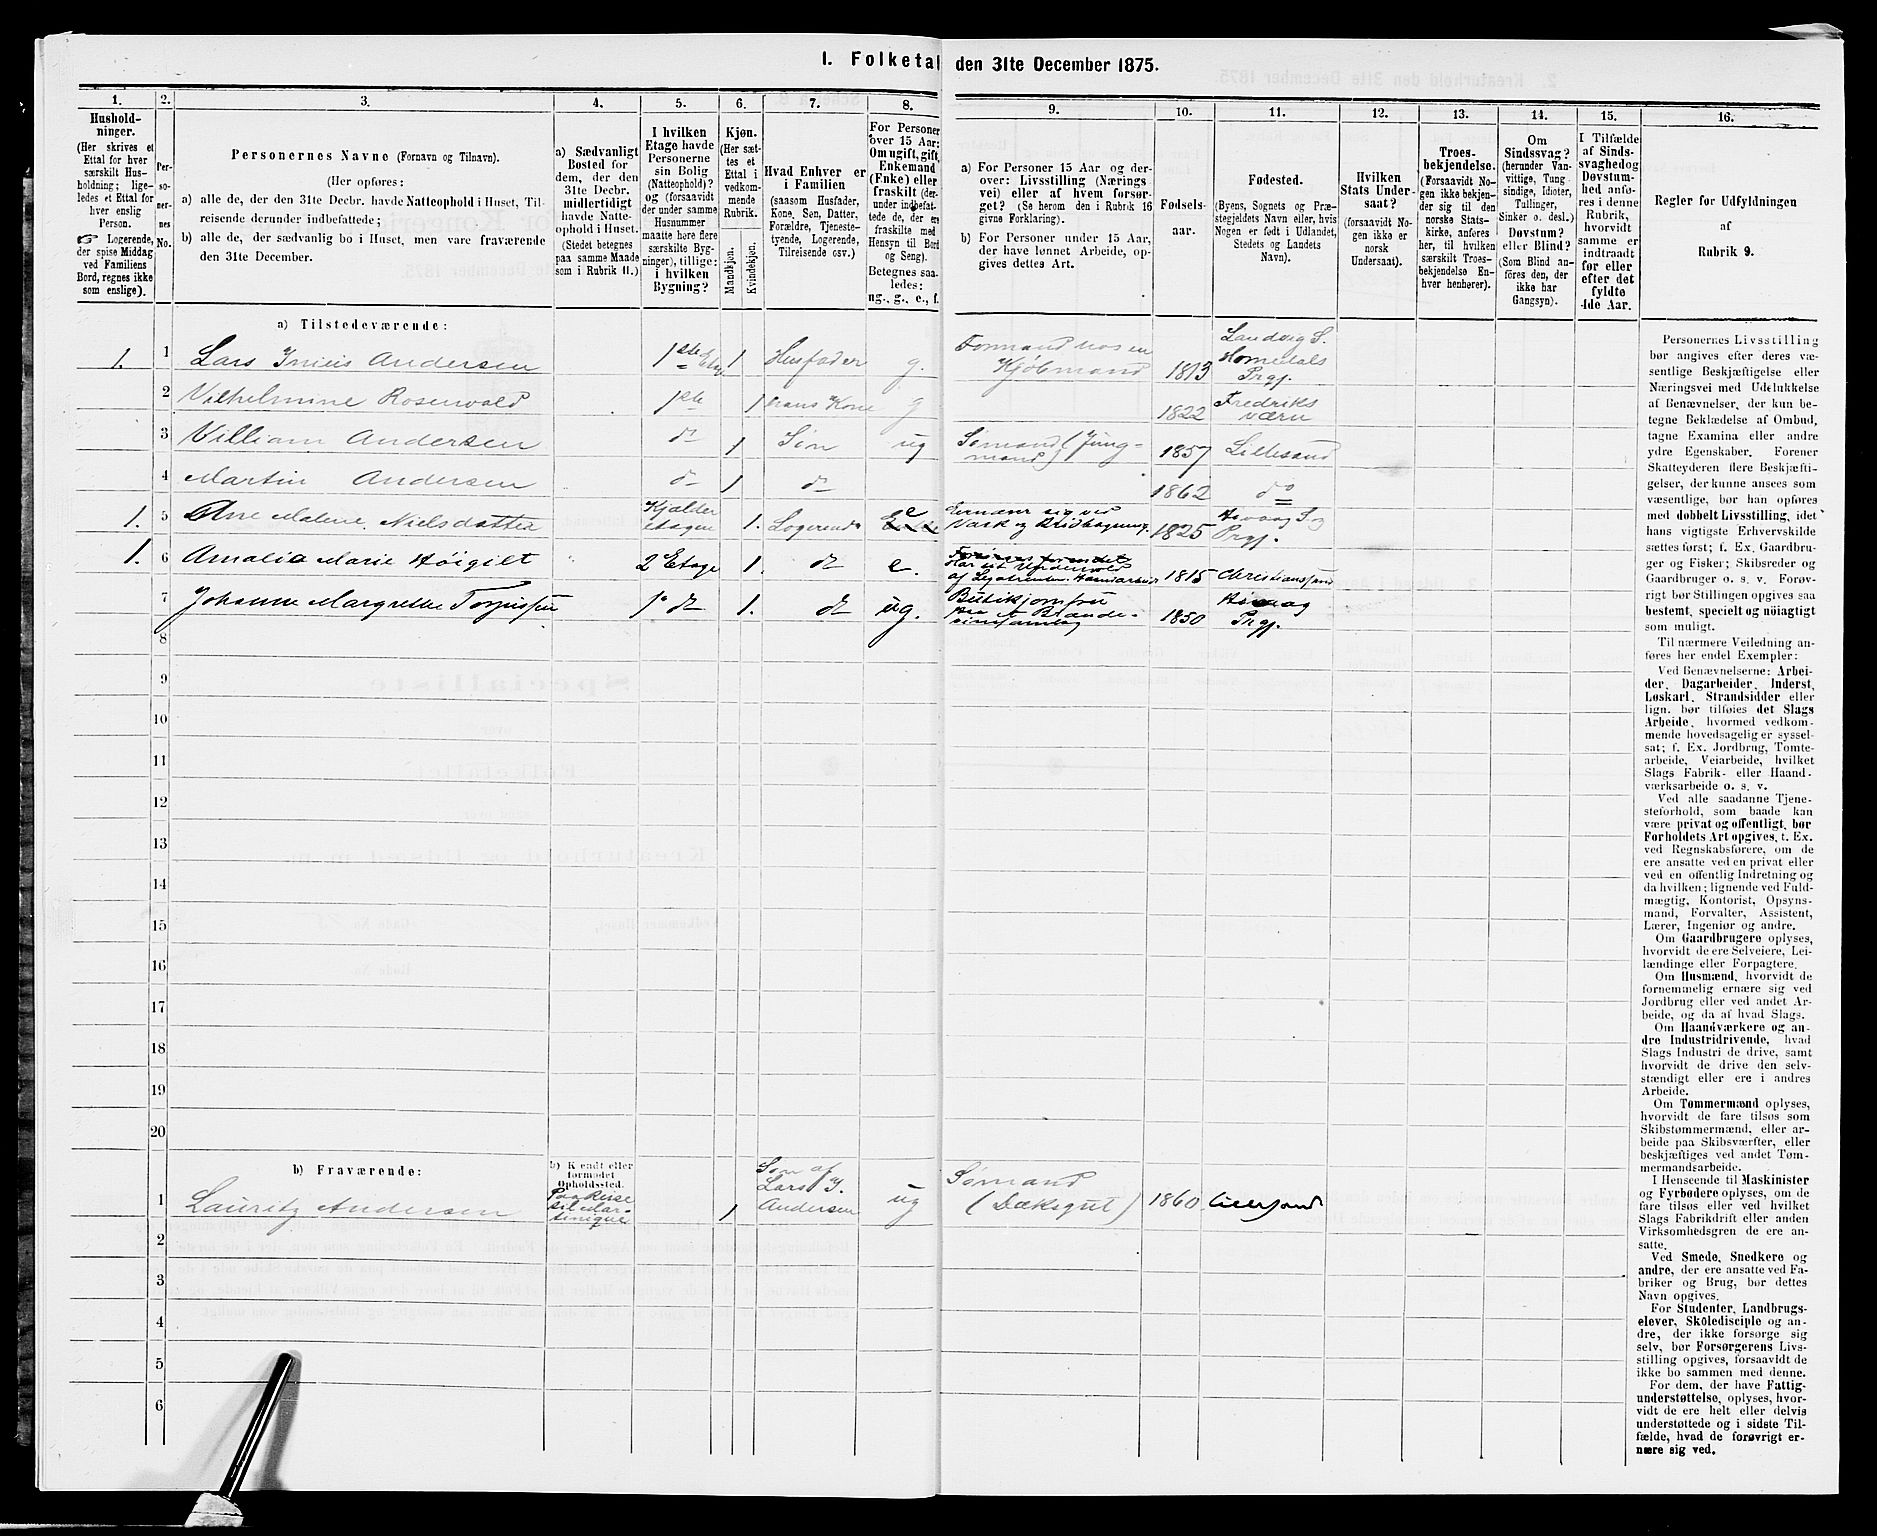 1. Folketal den 31te December 1875.
1.
Hushold-
ninger.
(Her skrives et
Ettal for hver
særskilt Hus-
holdning; lige-
ledes et Ettal for
hver enslig
Person.
☞ Logerende,
der spise Middag
ved Familiens
Bord, regnes ikke
som enslige).
2.
Per-
so-
ner-
nes
No.
3.
Personernes Navne (Fornavn og Tilnavn).
(Her opføres:
a) alle de, der den 31te Decbr. havde Natteophold i Huset, Til-
reisende derunder indbefattede;
b) alle de, der sædvanlig bo i Huset, men vare fraværende
den 31te December.
4.
a) Sædvanligt
Bosted for
dem, der den
31te Decbr.
midlertidigt
havde Natte-
ophold i Huset.
(Stedet betegnes
paa samme Maade
som i Rubrik 11.)
5.
I hvilken
Etage havde
Personerne
sin Bolig
(Natteophold)?
og (forsaavidt
der under samme
Husnummer
maatte høre flere
særskilte Byg-
ninger), tillige:
i hvilken
Bygning?
6.
Kjøn.
(Her sæt-
tes et
Ettal i
vedkom-
mende
Rubrik.
Mandkjøn.
Kvindekjøn.
7.
Hvad Enhver er
i Familien
(saasom Husfader,
Kone, Søn, Datter,
Forældre, Tjeneste-
tyende, Logerende,
Tilreisende osv.)
8.
For Personer
over 15 Aar:
Om ugift, gift,
Enkemand
(Enke) eller
fraskilt (der-
under indbefat-
tede de, der ere
fraskilte med
Hensyn til Bord
og Seng).
Betegnes saa-
ledes:
ug., g., e., f.
9.
a) For Personer 15 Aar og der-
over: Livsstilling (Nærings-
vei) eller af hvem forsør-
get? (Se herom den i Rubrik 16
givne Forklaring).
b) For Personer under 15 Aar,
der have lønnet Arbeide, op-
gives dettes Art.
10.
Fødsels-
aar.
11.
Fødested.
(Byens, Sognets og Præ-
stegjeldets Navn eller, hvis
Nogen er født i Udlandet,
Stedets og Landets
Navn).
12.
Hvilken
Stats Under-
saat?
(forsaavidt No-
gen ikke er
norsk
Undersaat).
13.
Troes-
bekjendelse.
(Forsaavidt No-
gen ikke bekjen-
der sig til den
norske Stats-
kirke, anføres
her, til hvilken
særskilt Troes-
bekjendelse En-
hver henhører).
14.
Om
Sindssvag?
(herunder Van-
vittige, Tung-
sindige, Idioter,
Tullinger,
Sinker o. desl.)
Døvstum?
eller Blind?
(Som Blind an-
føres den, der
ikke har
Gangsyn).
15.
I Tilfælde
af Sinds-
svaghedog
Døvstum-
hed anfø-
res i denne
Rubrik,
hvorvidt
samme er
indtraadt
før eller
efter det
fyldte
4de Aar.
16.
Regler for Udfyldningen
af
Rubrik 9.
a) Tilstedeværende:
1. 1 Lars Andersen 1ste Etag 1 Husfader g. Formand hos en Kjøbmand 1813 Landvig S. Homedals Prgj.
2 Vilhelmine Rosenvold 1ste 1 hans Kone g 1822 Fredriksværn
3 Villiam Andersen do 1 Søn ug Sømand (Jungmand) 1857 Lillesand
4 Martin Andersen do 1 do 1862 do
1. 5 Ane Malene Nielsdatter Kjælderetagen 1. Logerende e Ernærer sig ved Vask og Brødbagning 1825 S. og Prgj.
1. 6 Amalia Marie Høigilt 2 Etage 1. do e. Har sit Underhold af 1815 Christianssand
7 Johanne Margrethe Torjussen 1ste do 1. do ug. Butikjomfru 1850 Prgj.
8
9
10
11
12
13
14
15
16
17
18
19
20
b) Fraværende:
b) Kjendt eller
formodet
Opholdssted.
1 Lauritz Andersen Paa Reise til Martinique 1 Søn af Lars I. Andersen ug Sømand (Dæksgut) 1860 Lillesand
2
3
4
5
6
Personernes Livsstilling
bør angives efter deres væ-
sentlige Beskjæftigelse eller
Næringsvei med Udelukkelse
af Benævnelser, der kun be-
tegne Beklædelse af Ombud,
tagne Examina eller andre
ydre Egenskaber. Forener
Skatteyderen flere Beskjæfti-
gelser, der kunne ansees som
væsentlige, bør han opføres
med dobbelt Livsstilling, idet
hans vigtigste Erhvervskilde
sættes først; f. Ex. Gaardbru-
ger og Fisker; Skibsreder og
Gaardbruger o. s. v. Forøv-
rigt bør Stillingen opgives saa
bestemt, specielt og nöiagtigt
som muligt.
Til nærmere Veiledning an-
føres her endel Exempler:
Ved Benævnelserne: Arbei-
der, Dagarbeider, Inderst,
Løskarl, Strandsidder eller
lign. bør tilføies det Slags
Arbeide, hvormed vedkom-
mende hovedsagelig er syssel-
sat; f. Ex. Jordbrug, Tomte-
arbeide, Veiarbeide, hvilket
Slags Fabrik- eller Haand-
værksarbeide o. s. v.
Ved alle saadanne Tjene-
steforhold, som baade kan
være privat og offentligt, bør
Forholdets Art opgives, t. Ex.
ved Regnskabsførere, om de
ere ansatte ved en privat eller
ved en offentlig Indretning og
da hvilken; lignende ved Fuld-
mægtig, Kontorist, Opsyns-
mand, Forvalter, Assistent,
Lærer, Ingeniør og andre.
Om Gaardbrugere oplyses,
hvorvidt de ere Selveiere, Lei-
lændinge eller Forpagtere.
Om Husmænd, hvorvidt de
fornemmelig ernære sig ved
Jordbrug eller ved andet Ar-
beide, og da af hvad Slags.
Om Haandværkere og an-
dre Industridrivende, hvad
Slags Industri de drive, samt
hvorvidt de drive den selv-
stændigt eller ere i andres
Arbeide.
Om Tømmermænd oplyses,
hvorvidt de fare tilsøs som
Skibstømmermænd, eller ar-
beide paa Skibsværfter, eller
beskjæftiges ved andet Tøm-
mermandsarbeide.
I Henseende til Maskinister
og Fyrbødere oplyses, om de
fare tilsøs eller ved hvilket
Slags Fabrikdrift eller anden
Virksomhedsgren de ere an-
satte.
Ved Smede, Snedkere og
andre, der ere ansatte ved Fa-
briker og Brug, bør dettes
Navn opgives.
For Studenter, Landbrugs-
elever, Skoledisciple og an-
dre, der ikke forsørge sig
selv, bør Forsørgerens Livs-
stilling opgives, forsaavidt de
ikke bo sammen med denne.
For dem, der have Fattig-
understøttelse, oplyses, hvor-
vidt de ere helt eller delvis
understøttede og i sidste Til-
fælde, hvad de forøvrigt er-
nære sig ved.